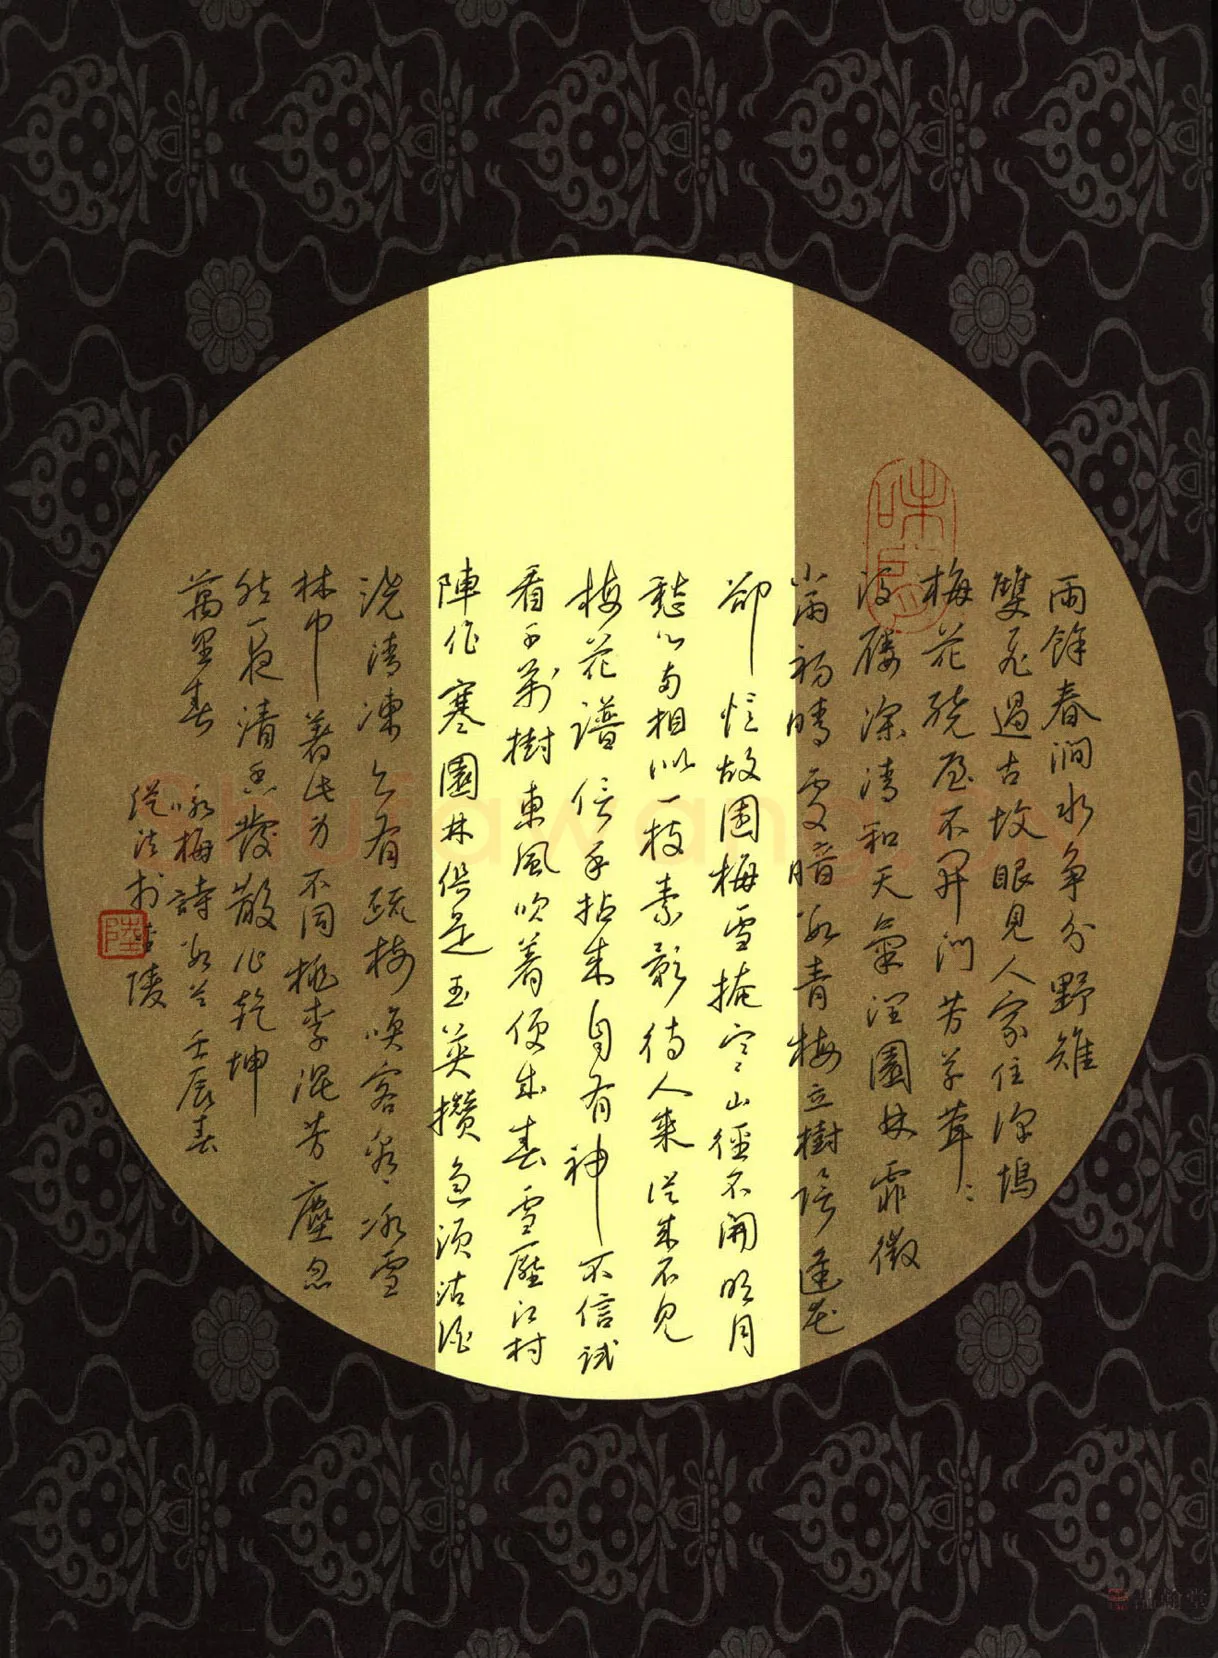 雨餘春澗水争分野雉
雙飛過古坟眼見人家住深塢
梅花繞屋不開门芳草茸〻
没屨深清和天氣润園林霏微
小雨初晴處暗數青梅立樹陰逢花
卻憶故園梅雪掩寒山徑不開明月
愁心两相似一枝素影待人來從来不見
梅花譜信手拈来自有神不信試
看千萬樹東風吹着便成春雪壓江村
陣作寒園林俱是玉英攢急須沽酒
浇清凍亦有疏梅唤客看冰雪
林中著此身不同桃李混芳塵忽
然一夜清香發散作乾坤
萬里春
咏梅詩數首壬辰春
陵
陸
Shufawang.CN